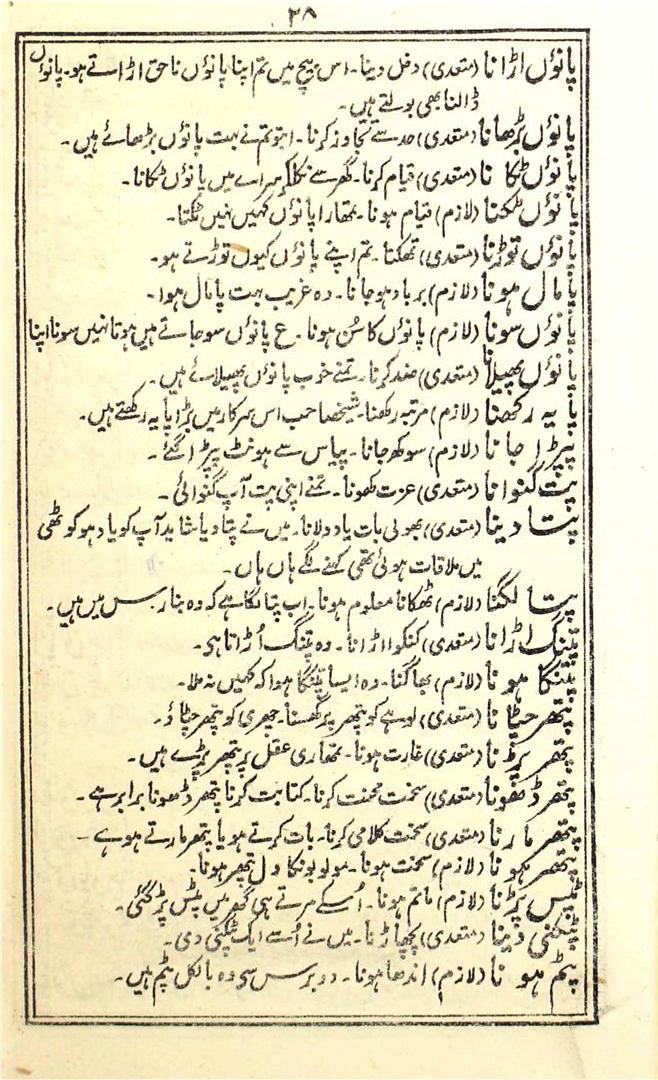 ۳۸
پانؤں اڑانا (متعدی) دخل دینا۔ اس بیچ میں تم اپنا پانؤں ناحق اڑاتے ہو۔ پانوں
ڈالنا بھی بولتے ہیں۔
پانؤں بڑھانا (متعدی) حد سے تجاوز کرنا۔ ابتو تمنے بہت پانؤں بڑھائے ہیں۔
پانؤں ٹکا نا (متعدی) قیام کرنا۔ گھر سے نکلکر سراے میں پانؤں ٹکانا۔
پانؤں ٹکنا (لازم) قیام ہونا۔ تمھارا پانؤں کہیں نہیں ٹکتا۔
پانؤں توڑنا (متعدی) تھکنا۔ تم اپنے پانؤں کیوں توڑتے ہو۔
پامال ہونا (لازم) برباد ہوجانا۔ وہ غریب بہت پامال ہوا۔
پانؤں سونا (لازم) پانؤں کا سُن ہونا۔ ع پانؤں سوجاتے ہیں ہوتا نہیں سونا اپنا
پانؤں پھیلانا (متعدی) ضد کرنا۔ تمنے خوب پانؤں پھیلائے ہیں۔
پایہ رکھنا (لازم) مرتبہ رکھنا۔ شیخصاحب اس سرکار میں بڑا پایہ رکھتے ہیں۔
پپڑا جانا (لازم) سوکھ جانا۔ پیاس سے ہونٹ پپڑا گئے۔
پت گنوانا (متعدی) عزت کھونا۔ تمنے اپنی پت آپ گنوائی۔
پتا دینا (متعدی) بھولی بات یاد دلانا۔ میں نے پتا دیا شاید آپ کو یاد ہو کوٹھی
میں ملاقات ہوئی تھی کہنے لگے ہاں ہاں۔
پتا لگنا (لازم) ٹھکانا معلوم ہونا۔ اب پتا لگا ہے کہ وہ بنارس میں ہیں۔
پتنگ اڑانا (متعدی) کنکوا اڑانا۔ وہ پتنگ اُڑاتا ہی۔
پتنگا ہونا (لازم) بھاگنا۔ وہ ایسا پتنگا ہوا کہ کہیں نہ ملا۔
پتھر چٹانا (متعدی) لوہے کو پتھر پر گھسنا۔ چھری کو پتھر چٹاؤ۔
پتھر پڑنا (متعدی) غارت ہونا۔ تمھاری عقل پر پتھر پڑے ہیں۔
پتھر ڈھونا (متعدی) سخت محنت کرنا۔ کتابت کرنا پتھر ڈھونا برابر ہے۔
پتھر مارنا (متعدی) سخت کلامی کرنا۔ بات کرتے ہو یا پتھر مارتے ہو۔
پتھر ہونا (لازم) سخت ہونا۔ دل پتھر ہونا۔
پٹس پڑنا (لازم) ماتم ہونا۔ اُسکے مرتے ہی گھر میں پٹس پڑگئی۔
پٹکنی دینا (متعدی) پچھاڑنا۔ میں نے اُسے ایک پٹکنی دی۔
پٹم ہونا (لازم) اندھا ہونا۔ دو برس سی وہ بالکل پٹم ہیں۔